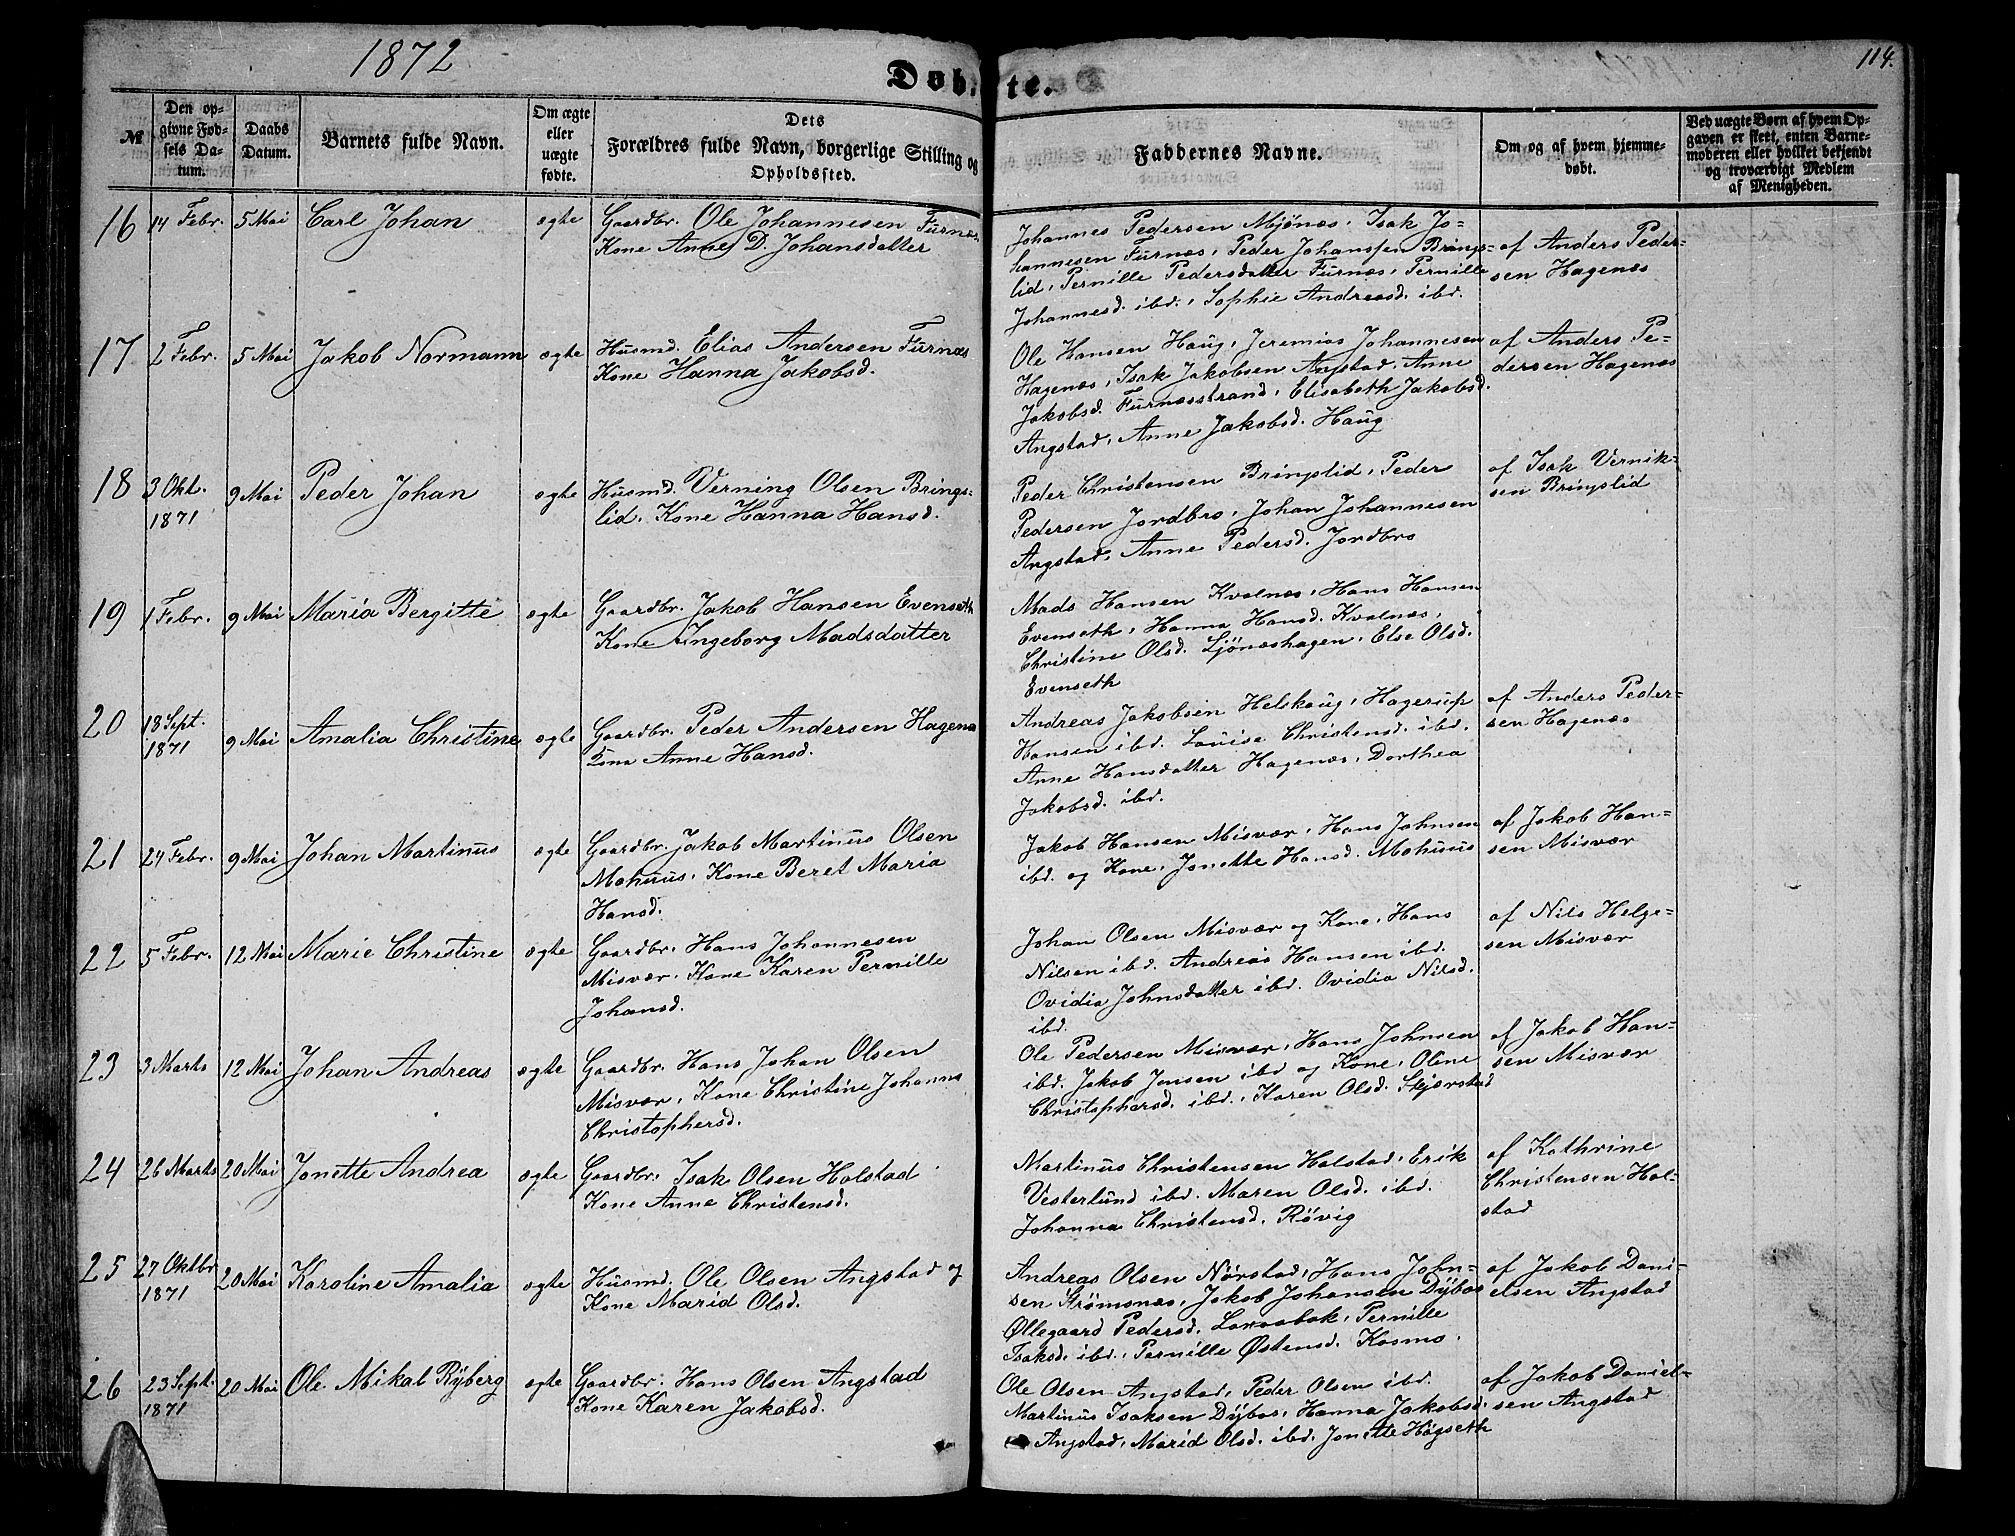 1872
Døbte.
114.
№
Den opgivne Fødsels Datum.
Daabs Datum.
Barnets fulde Navn.
Om ægte eller uægte fødte.
Dets
Forældres fulde Navn, borgerlige Stilling og
Opholdssted.
Faddernes Navne.
Om og af hvem hjemmedøbt.
Ved uægte Børn af hvem Opgaven er skett, enten Barnemoderen eller hvilket bekjendt og troværdigt Medlem af Menigheden.
16 14 Febr. 5 Mai Carl Johan ægte Gaardbr. Ole Johannesen Furnæs.
Kone Anne D. Johansdatter
Johannes Pedersen Mjönæs, Isak Jo-
hannesen Furnæs, Peder Johansen Brings-
lid, Pernille Pedersdatter Furnæs, Pernille
Johannesd. ibd., Sophie Andreasd. ibd.
af Anders Peder-
sen Hagenæs
17 2 Febr. 5 Mai Jakob Normann ægte Husmd. Elias Andersen Furnæs
Kone Hanna Jakobsd.
Ole Hansen Haug, Jeremias Johannesen
Hagenæs, Isak Jakobsen Angstad, Anne
Jakobsd. Furnæsstrand, Elisabeth Jakobsd.
Angstad, Anne Jakobsd. Haug
af Anders Pe-
dersen Hagenæs
18 3 Okt. 1871 9 Mai Peder Johan ægte Husmd. Verning Olsen Brings-
lid. Kone Hanna Hansd.
Peder Christensen Bringslid, Peder
Pedersen Jordbro, Johan Johannesen
Angstad, Anne Pedersd. Jordbro
af Isak Vernik-
sen Bringslid
19 1 Febr. 9 Mai Maria Bergitte ægte Gaardbr. Jakob Hansen Evenseth
Kone Ingeborg Madsdatter
Mads Hansen Kvalnæs, Hans Hansen
Evenseth, Hanna Hansd. Kvalnæs,
Christine Olsd. Ljönæshagen, Else Olsd.
Evenseth
20 18 Sept. 1871 9 Mai Amalia Christine ægte Gaardbr. Peder Andersen Hagenæ
Kone Anne Hansd.
Andreas Jakobsen Helskaug, Hagerup
Hansen ibd. Louise Christensd. ibd.
Anne Hansdatter Hagenæs, Dorthea
Jakobsd. ibd.
af Anders Peder-
sen Hagenæs
21 24 Febr. 9 Mai Johan Martinus ægte Gaardbr. Jakob Martinus Olsen
Mohuus, Kone Beret Maria
Hansd.
Jakob Hansen Misvær, Hans Johnsen
ibd. og Kone, Jonette Hansd. Mohuus
af Jakob Han-
sen Misvær
22 5 Febr. 12 Mai Marie Christine ægte Gaardbr. Hans Johannesen
Misvær, Kone Karen Pernille
Johansd.
Johan Olsen Misvær og Kone, Hans
Nilsen ibd. Andreas Hansen ibd.
Ovidia Johnsdatter ibd. Ovidia Nilsd.
ibd.
af Nils Helge-
sen Misvær
23 3 Marts 12 Mai Johan Andreas ægte Gaardbr. Hans Johan Olsen
Misvær, Kone Christine Johanna
Christophersd.
Ole Pedersen Misvær, Hans Johnsen
ibd. Jakob Jensen ibd og Kone, Oline
Christophersd. ibd., Karen Olsd. Skjerstad
af Jakob Han-
sen Misvær
24 26 Marts 20 Mai Jonette Andrea ægte Gaardbr. Isak Olsen Holstad
Kone Anne Christensd.
Martinus Christensen Holstad, Erik
Vesterlund ibd. Maren Olsd. ibd.
Johanna Christensd. Røvig
af Kathrine
Christensen Hol-
stad
25 27 Oktbr 1871 20 Mai Karoline Amalia ægte Husmd. Ole Olsen Angstad og
Kone Marid Olsd.
Andreas Olsen Nørstad, Hans John-
sen Strømsnæs, Jakob Johansen Dybos
Øllegaard Pedersd. Pernille
Isaksd. ibd., Pernille Østensd. Kosmo.
af Jakob Dani-
elsen Angstad
26 23 Sept. 1871 20 Mai Ole Mikal Ryberg ægte Gaardbr. Hans Olsen Angstad
Kone Karen Jakobsd.
Ole Olsen Angstad, Peder Olsen ibd.
Martinus Isaksen Dybos, Hanna Jakobsd.
Angstad, Marid Olsd. ibd. Jonette Högseth
af Jakob Daniel-
sen Angstad